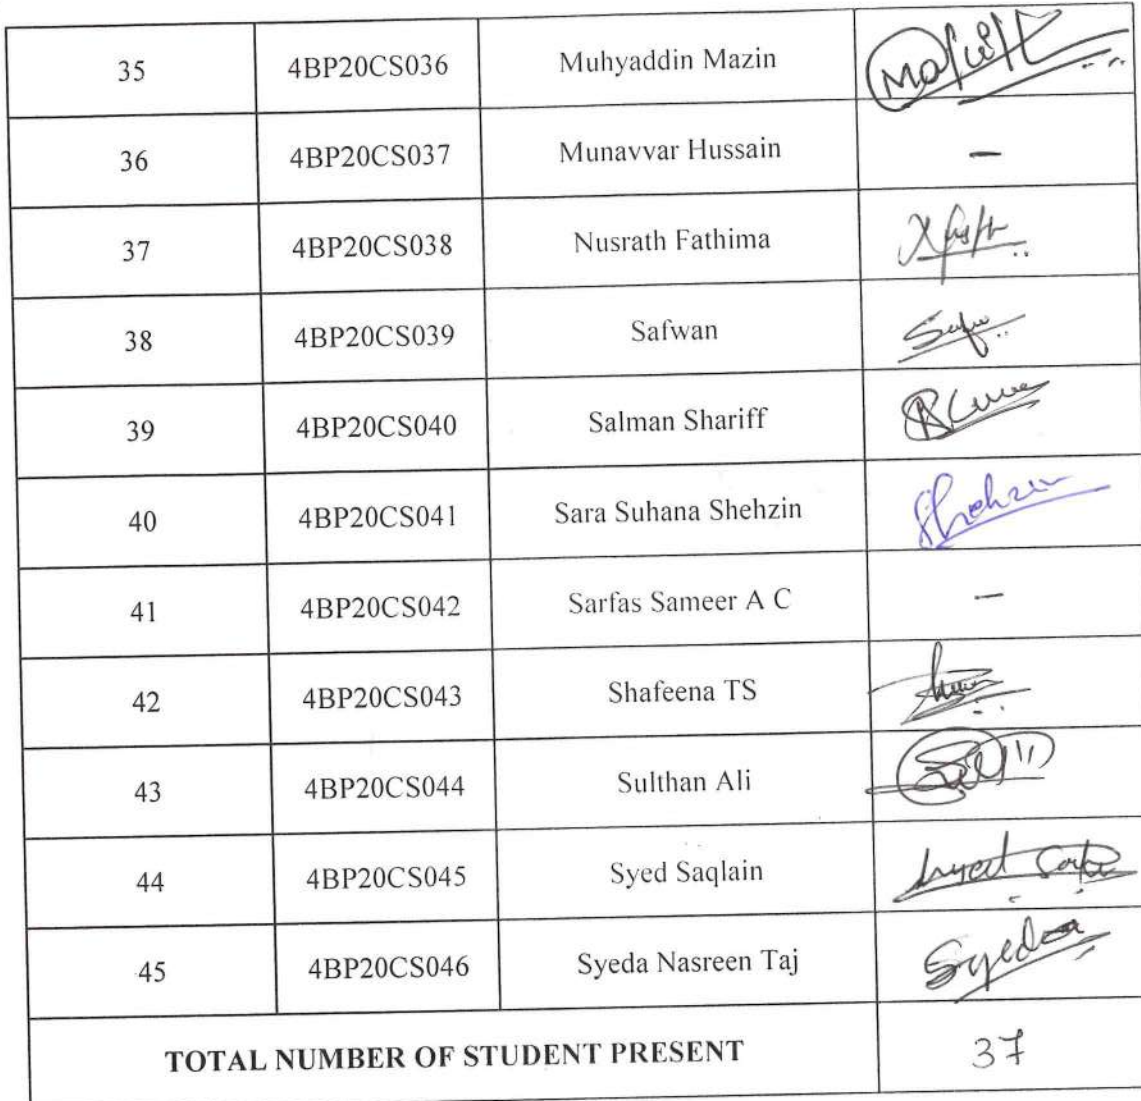 35 4BP20CS036 Muhyaddin Mazin
36 4BP20CS037 Munavvar Hussain –
37 4BP20CS038 Nusrath Fathima
38 4BP20CS039 Safwan
39 4BP20CS040 Salman Shariff
40 4BP20CS041 Sara Suhana Shehzin Shehzin
41 4BP20CS042 Sarfas Sameer A C –
42 4BP20CS043 Shafeena TS
43 4BP20CS044 Sulthan Ali
44 4BP20CS045 Syed Saqlain Syed
45 4BP20CS046 Syeda Nasreen Taj Syeda
TOTAL NUMBER OF STUDENT PRESENT 37